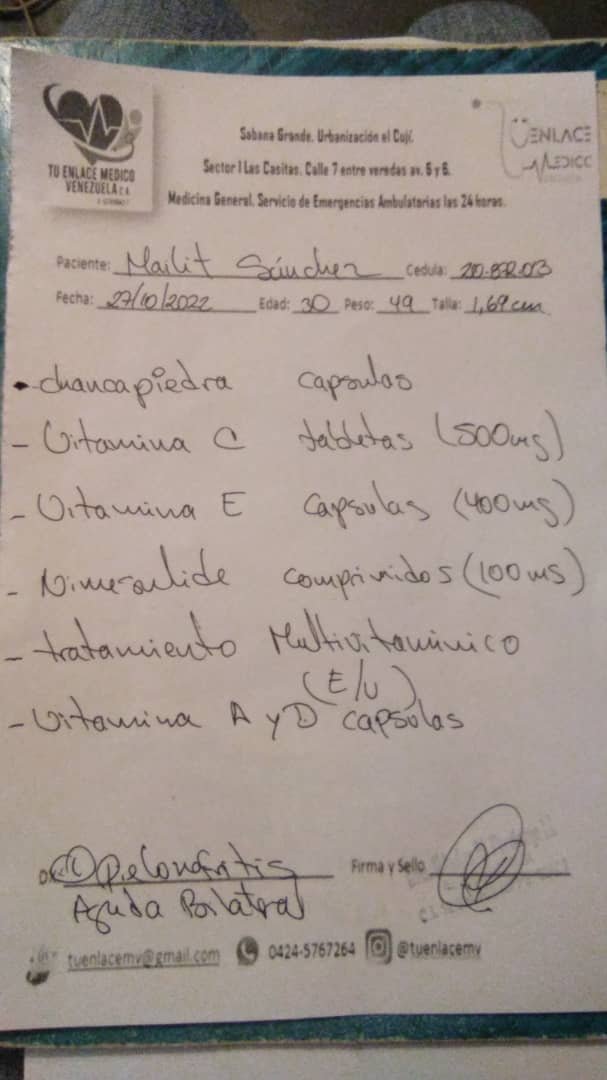 TU ENLACE MEDICO
VENEZUELA C.A
ÜENLACE
MEDICO
Sabana Grande. Urbanización el Cují.
Sector I Las Casitas. Calle 7 entre veredas av. 5 y 6.
Medicina General. Servicio de Emergencias Ambulatorias las 24 horas.
Paciente: Mailit Sánchez Cedula:
Fecha: 27/10/2022 Edad: 30 Peso: 49 Talla: 1,69 cm
- chancapiedra capsulas
- Vitamina C tabletas (500mg)
- Vitamina E capsulas (400mg)
- Nimesulide comprimidos (100mg)
- tratamiento Multivitaminico
(E/V)
- Vitamina A y D capsulas
Pielonefritis Firma y Sello
Aguda Bilateral
tuenlacemv@gmail.com 0424-5767264 @tuenlacemv